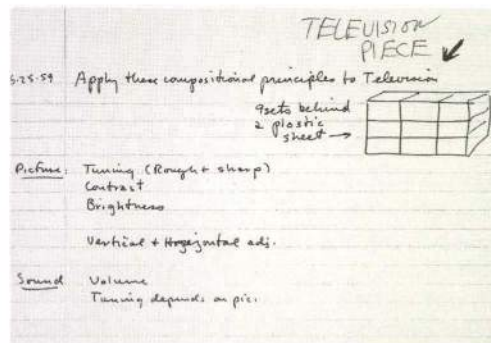 TELEVISION
PIECE
5.25.59 Apply these compositional principles to Television
9 sets behind
a plastic
sheet →
Picture: Tuning (Rough + sharp)
Contrast
Brightness
Vertical + Horizontal adj.
Sound Volume
Tuning depends on pic.